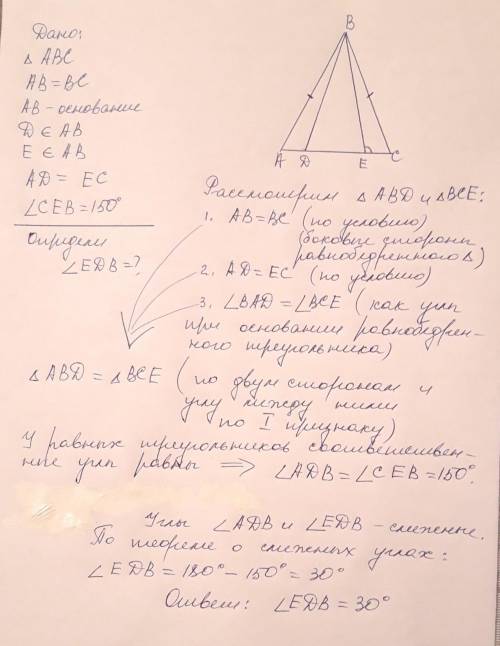 Дано:
△ ABC
AB = BC
AB - основание
D ∈ AB
E ∈ AB
AD = EC
∠CEB = 150°
Определи
∠EDB = ?
B
A D E C
Рассмотрим △ ABD и △BCE:
1. AB = BC (по условию)
(боковые стороны
равнобедренного △)
2. AD = EC (по условию)
3. ∠BAD = ∠BCE (как углы
при основании равнобедрен-
ного треугольника)
△ ABD = △ BCE (по двум сторонам и
углу между ними
по I признаку)
У равных треугольников соответствен-
ные углы равны ⟹ ∠ADB = ∠CEB = 150°.
Углы ∠ADB и ∠EDB - смежные.
По теореме о смежных углах:
∠EDB = 180° - 150° = 30°
Ответ: ∠EDB = 30°